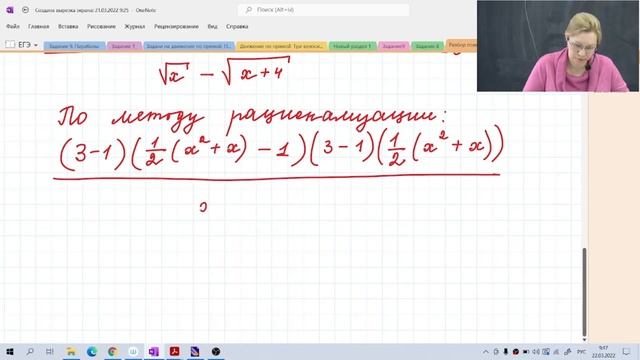 Создана вырезка экрана: 21.03.2022 9:25 - OneNote
Поиск (Alt+Ы)
Файл Главная Вставка Рисование Журнал Рецензирование Вид Справка
ЕГЭ Задание 9. Параболы Задание 1 Задачи на движение по прямой. П... Движение по прямой. Три велоси... Новый раздел 1 Задание9 Задание 6
√x - √x+4
По методу рационализации:
(3-1)(1/2(x²+x)-1)(3-1)(1/2(x²+x))
РУС
9:47
22.03.2022